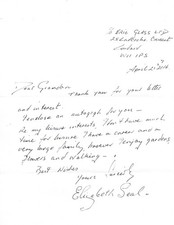 To ERIC GLASS LTD
25 Ladbroke Crescent
London
W11 1PS
April 21st 2014
Dear Grandon
Thank you for your letter
and interest.
I enclose an autograph for you —
As my leisure interests I don't have much
time for because I have a career and a
very large family however I enjoy gardens
flowers and walking —!
Best wishes
Yours sincerely
Elizabeth Seal —